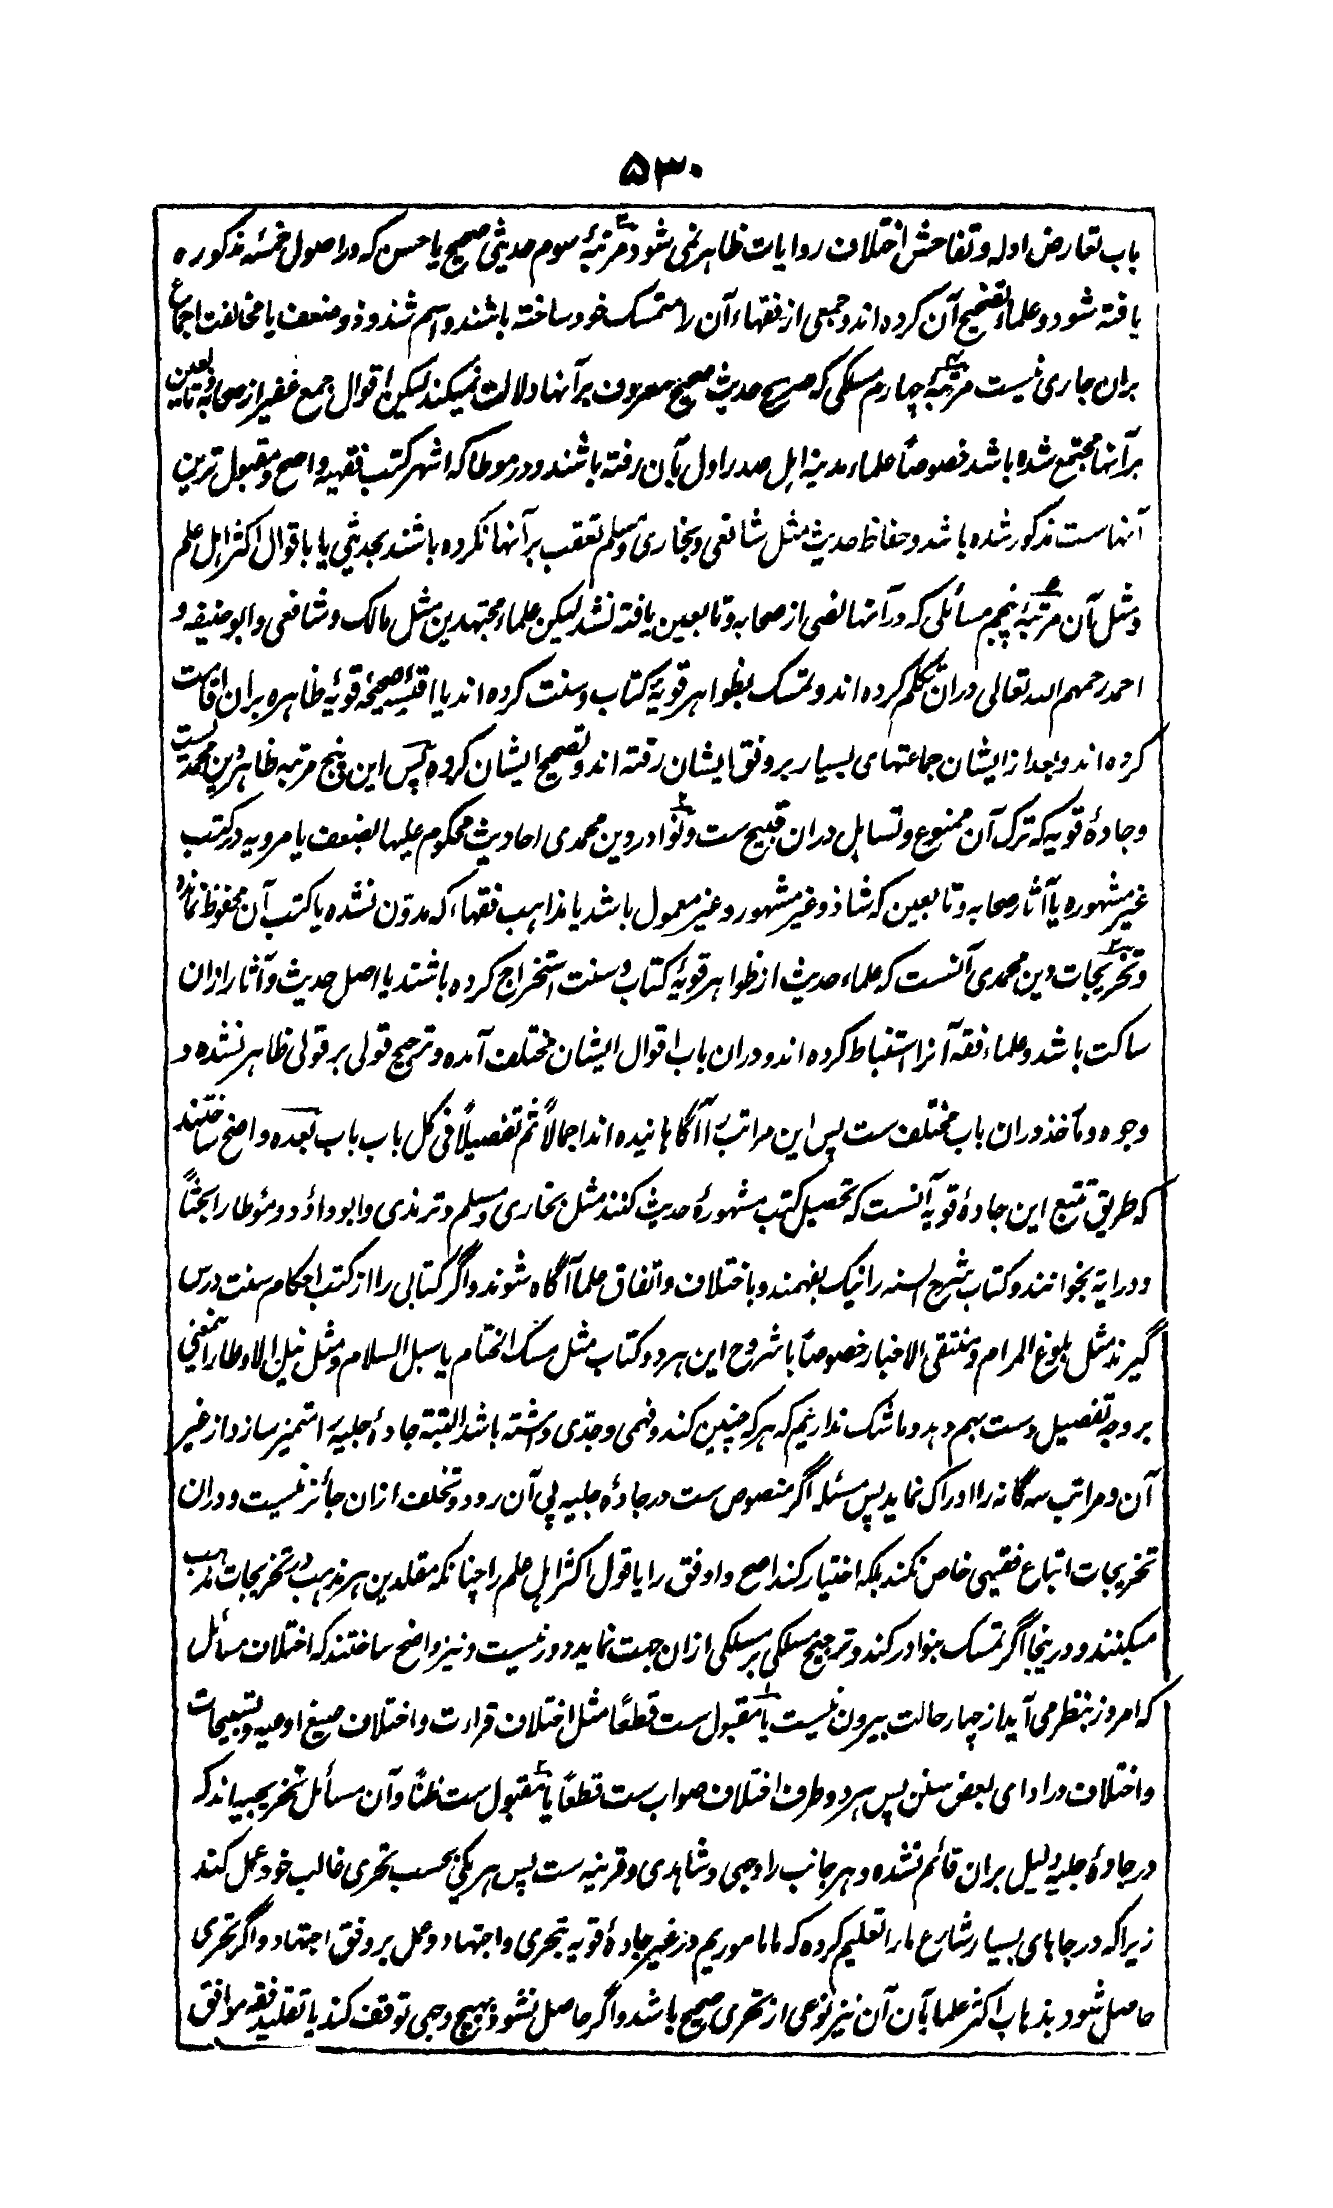 ۵۳۰
باب تعارض ادله و تفاحش اختلاف روایات ظاهر نمی شود و مرتبهٔ سوم حدیثی صحیح یا حسن که در اصول خمسه مذکوره
یافته شود و علما تصحیح آن کرده اند و جمعی از فقهاء آن را متمسک خود ساخته باشند و اسم شذوذ و ضعف یا مخالفت اجماع
بران جاری نیست مرتبهٔ چهارم مسلکی که صریح حدیث صحیح معروف بر آنها دلالت نمیکند لیکن اقوال جمع غفیر از صحابه و تابعین
بر آنها مجتمع شده باشد خصوصاً علماء مدینه اهل صدر اول بآن رفته باشند و در موطا که اشهر کتب فقهیه و اصح و مقبول ترین
آنهاست مذکور شده باشد و حفاظ حدیث مثل شافعی و بخاری و مسلم تعقب بر آنها نکرده باشند بحدیثی یا باقوال اکثر اهل علم
و مثل آن مرتبهٔ پنجم مسائلی که در آنها نصی از صحابه و تابعین یافته نشد لیکن علماء مجتهدین مثل مالک و شافعی و ابو حنیفه و
احمد رحمهم الله تعالی دران تکلم کرده اند و تمسک بظواهر قویهٔ کتاب و سنت کرده اند یا اقیسهٔ صحیحهٔ قویهٔ ظاهره بران اقامت
کرده اند و بعد از ایشان جماعتهای بسیار بر وفق ایشان رفته اند و تصحیح ایشان کرده پس این پنج مرتبه ظاهر دین محمدیست
و جادهٔ قویه که ترک آن ممنوع و تساهل دران قبیح ست و نوادر دین محمدی احادیث محکوم علیها بالضعف یا مرویه در کتب
غیر مشهوره یا آثار صحابه و تابعین که شاذ و غیر مشهور و غیر معمول باشد یا مذاهب فقهاء که مدوّن نشده یا کتب آن محفوظ نمانده
و تخریجات دین محمدی آنست که علماء حدیث از ظواهر قویهٔ کتاب و سنت استخراج کرده باشند یا اصل حدیث و آثار ازان
ساکت باشد و علماء فقه آنرا استنباط کرده اند و دران باب اقوال ایشان مختلف آمده و ترجیح قولی بر قولی ظاهر نشده و
وجوه و مآخذ دران باب مختلف ست پس این مراتب را آگاهانیده اند اجمالاً ثم تفصیلاً فی کل باب باب بعده واضح ساختند
که طریق تتبع این جادهٔ قویه آنست که تحصیل کتب مشهورهٔ حدیث کنند مثل بخاری و مسلم و ترمذی و ابو داؤد و مؤطا را بحثاً
و درایهً بخوانند و کتاب شرح السنه را نیک بفهمند و باختلاف و اتفاق علما آگاه شوند و اگر کتابی را از کتب احکام سنت درس
گیرند مثل بلوغ المرام و منتقی الاخبار خصوصاً با شروح این هر دو کتاب مثل مسک الختام یا سبل السلام و مثل نیل الاوطار این معنی
بر وجه تفصیل دست بهم دهد و ما شک نداریم که هر که چنین کند و فهمی و جدّی داشته باشد البته جادهٔ جلیه را متمیز سازد از غیر
آن و مراتب سه گانه را ادراک نماید پس مسئله اگر منصوص ست در جادهٔ جلیه پی آن رود و تخلف ازان جائز نیست و دران
تخریجات اتباع فقیهی خاص نکند بلکه اختیار کند اصح و اوفق را یا قول اکثر اهل علم را چنانکه مقلدین هر مذهب در تخریجات مذهب
میکنند و درینجا اگر تمسک بنوادر کند و ترجیح مسلکی بر مسلکی ازان جهت نماید دور نیست و نیز واضح ساختند که اختلاف مسائل
که امروز بنظر می آید از چهار حالت بیرون نیست یا مقبول ست قطعًا مثل اختلاف قراءت و اختلاف صیغ ادعیه و تسبیحات
و اختلاف در ادای بعض سنن پس هر دو طرف اختلاف صواب ست قطعًا یا مقبول ست ظنًا و آن مسائل تخریجیه اند که
در جادهٔ جلیه دلیل بران قائم نشده و هر جانب را وجهی و شاهدی و قرینه ست پس هر یکی بحسب تحری غالب خود عمل کند
زیرا که در جاهای بسیار شارع ما را تعلیم کرده که ما ماموریم در غیر جادهٔ قویه بتحری و اجتهاد و عمل بر وفق اجتهاد و اگر تحری
حاصل شود بذهاب اکثر علما بآن آن نیز نوعی از تحری صحیح باشد و اگر حاصل نشود بهیچ وجهی توقف کند یا تقلید فقه موافق